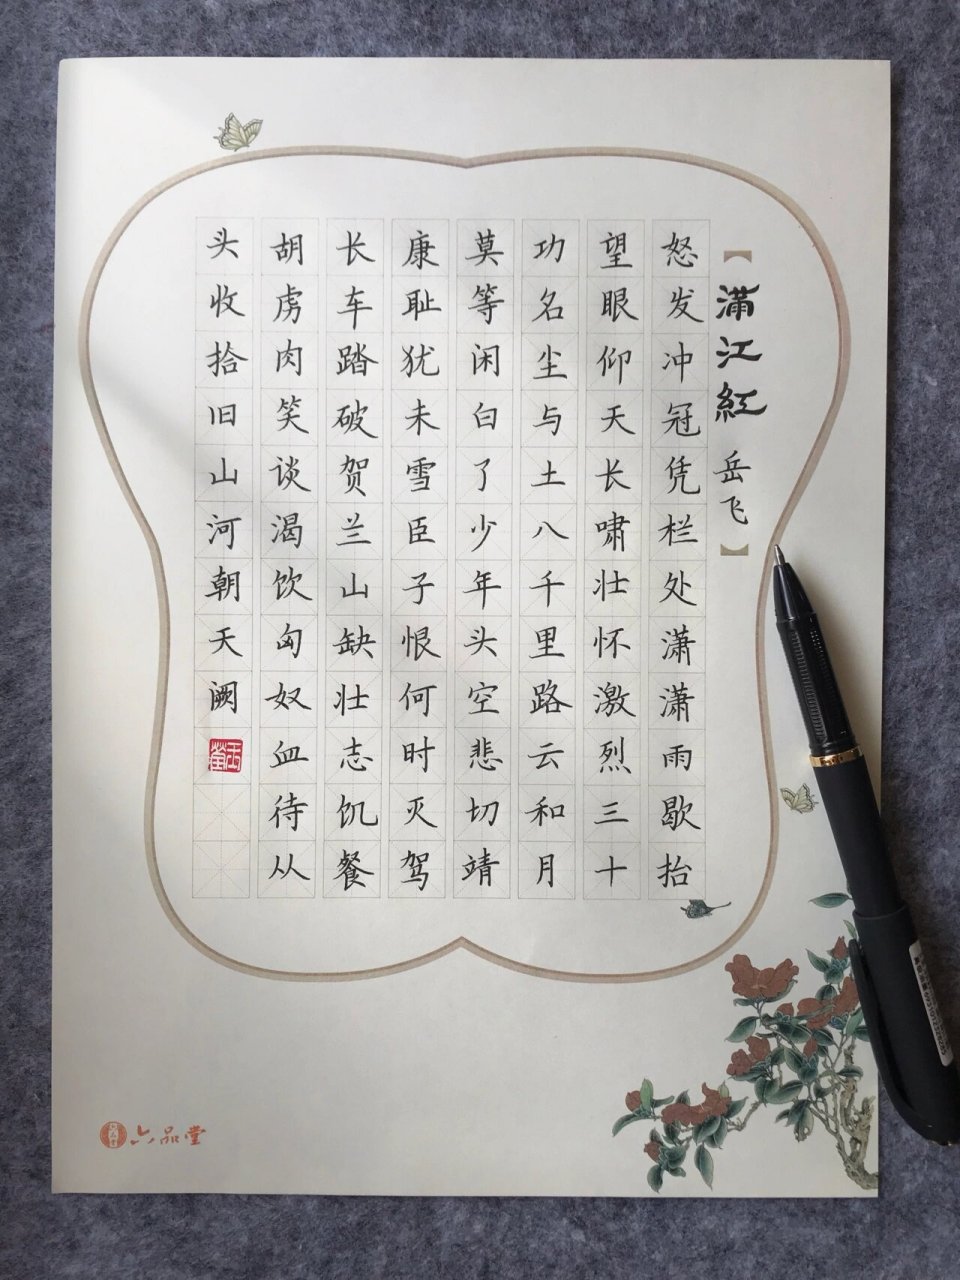 【满江紅 岳飞】
怒发冲冠凭栏处潇潇雨歇抬
望眼仰天长啸壮怀激烈三十
功名尘与土八千里路云和月
莫等闲白了少年头空悲切靖
康耻犹未雪臣子恨何时灭驾
长车踏破贺兰山缺壮志饥餐
胡虏肉笑谈渴饮匈奴血待从
头收拾旧山河朝天阙
六品堂